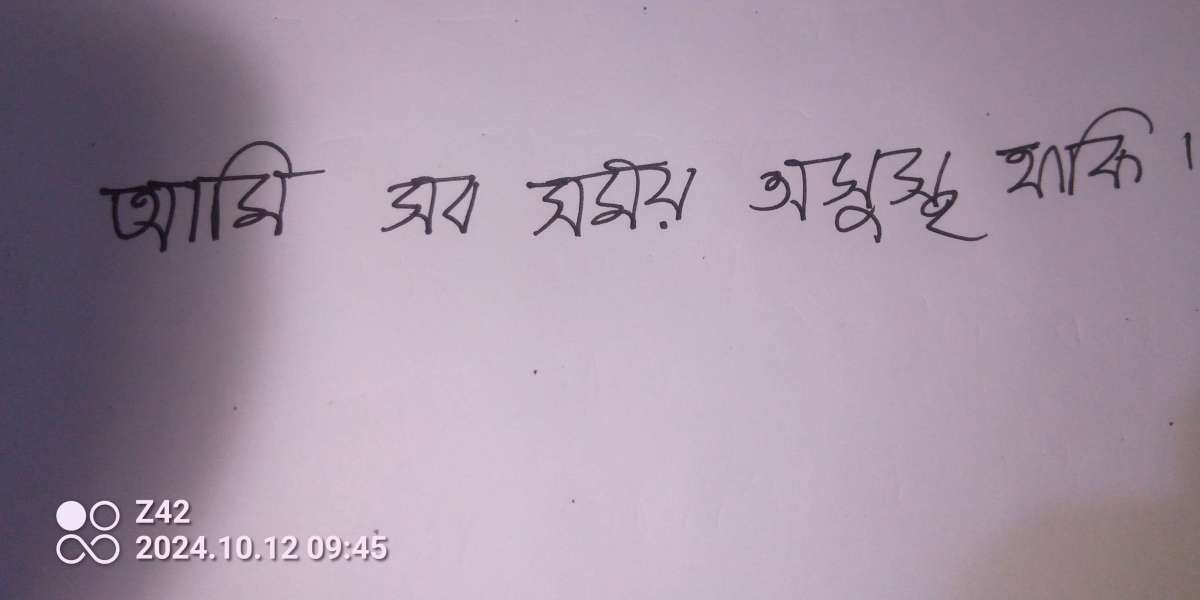 আমি সব সময় অসুস্থ থাকি।
Z42
2024.10.12 09:45